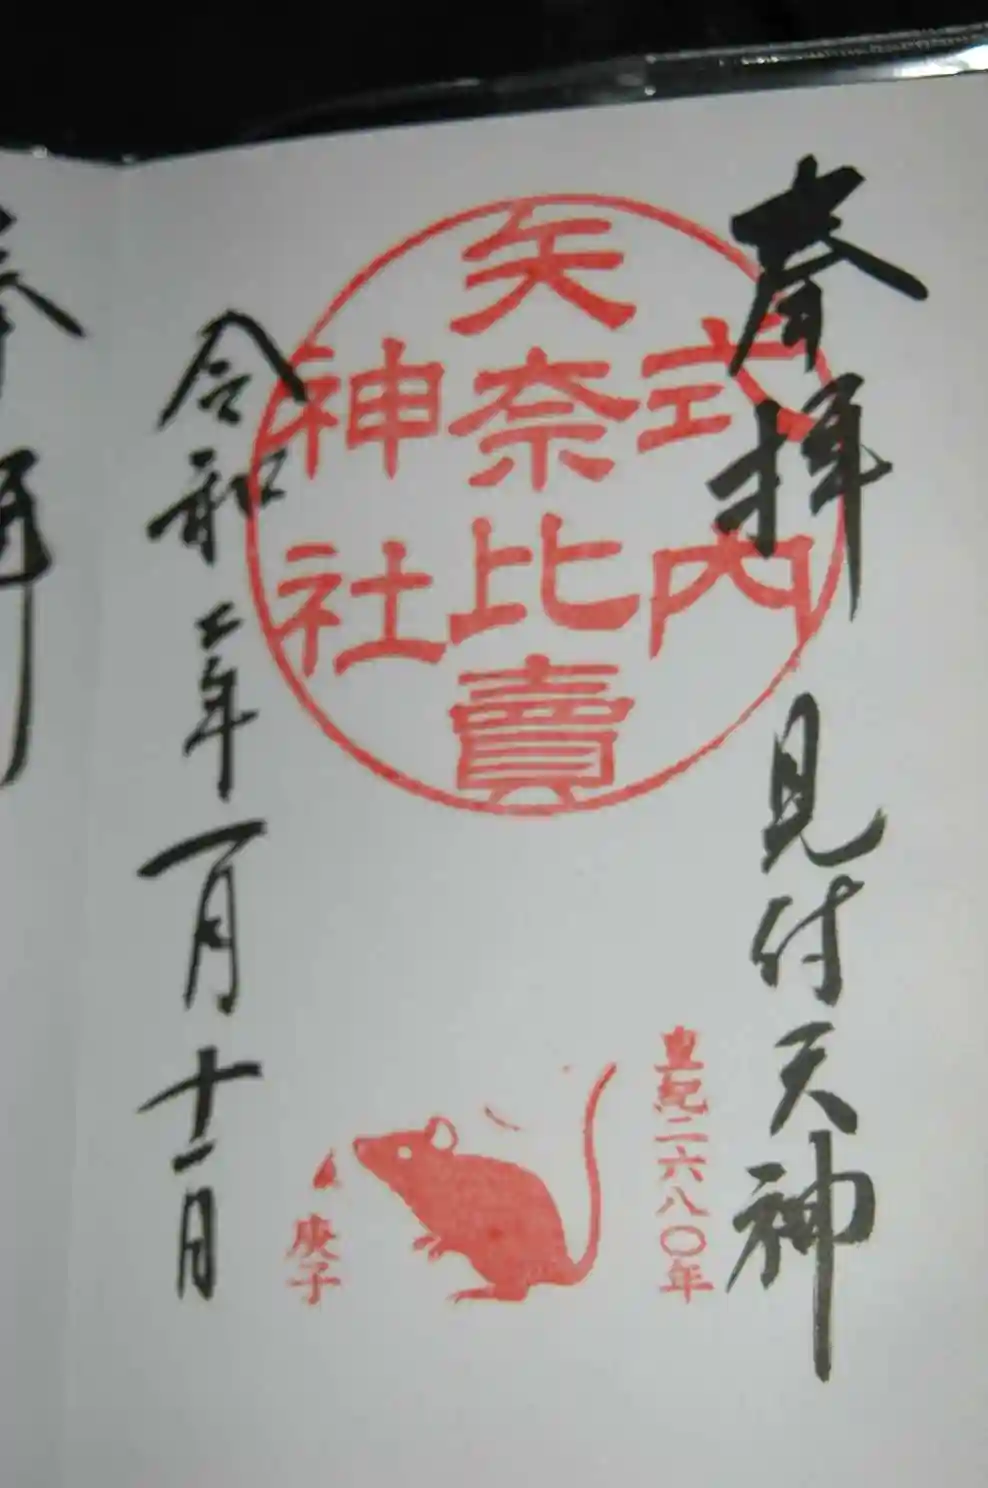 奉拝 見付天神
式内
矢奈比賣
神社
皇紀二六八〇年
庚子
令和二年一月十一日